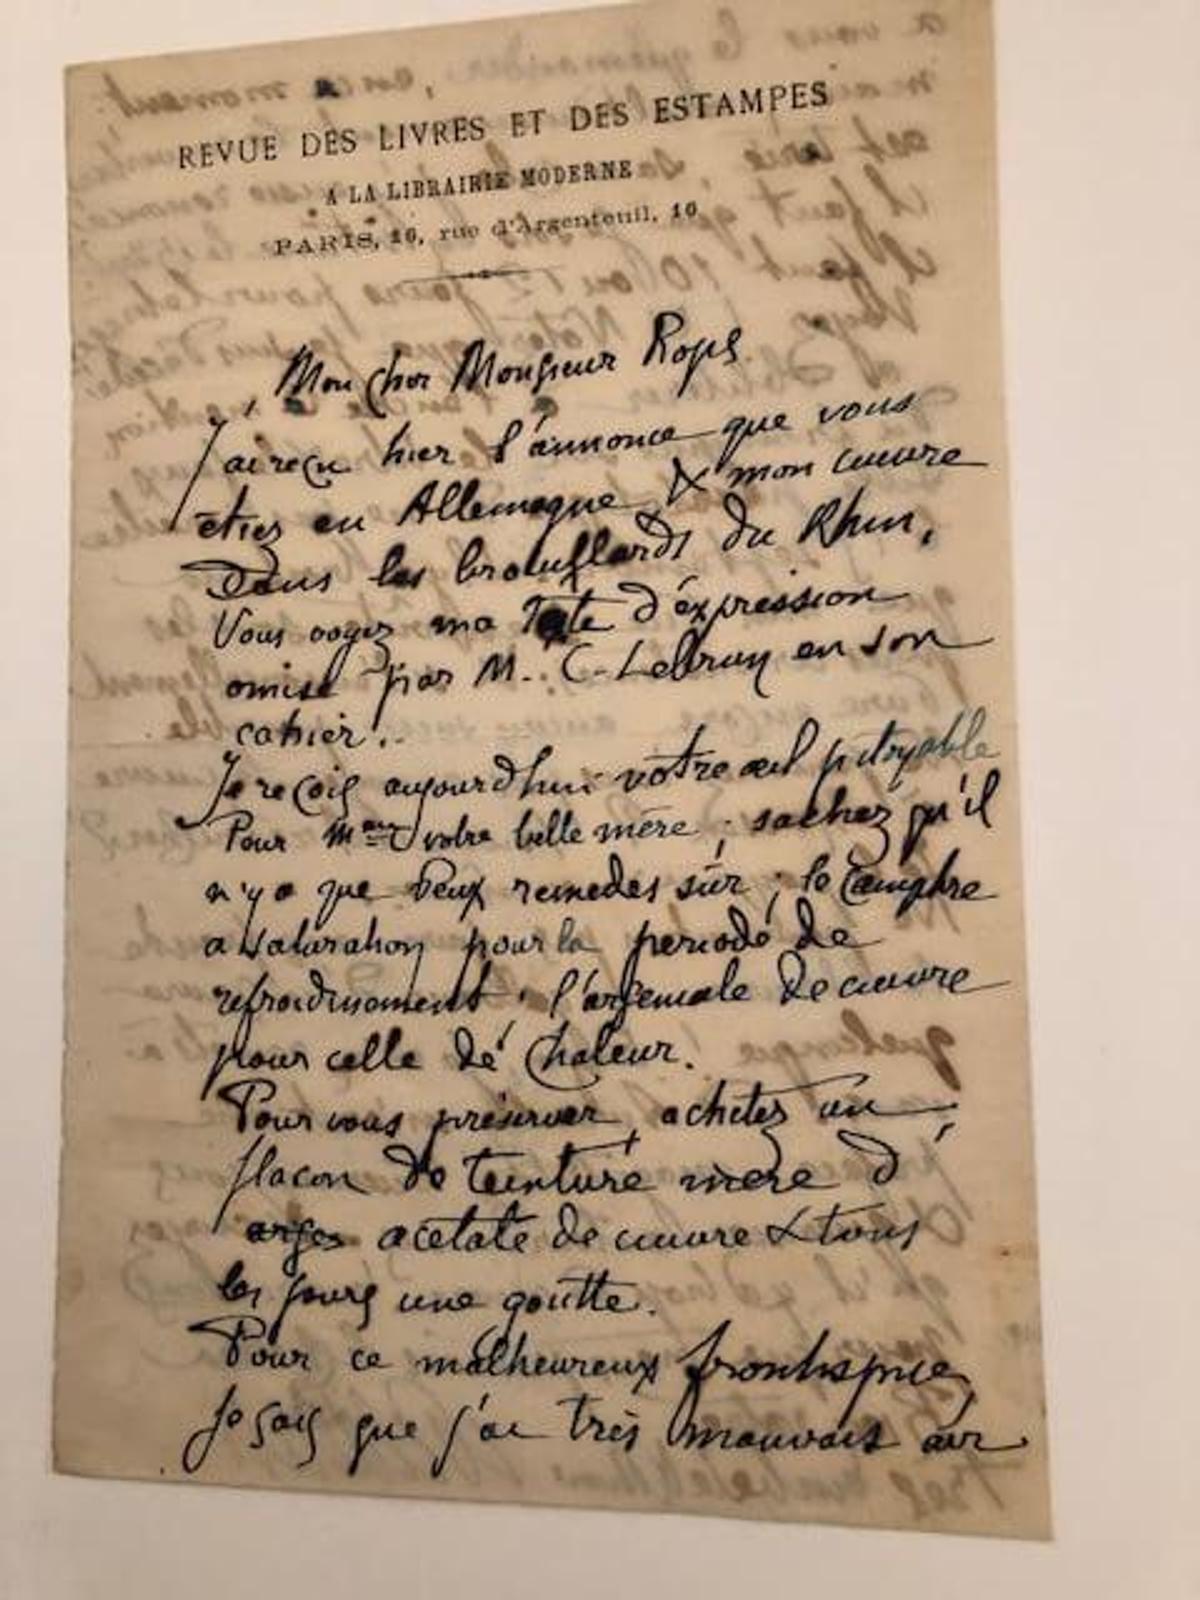 REVUE DES LIVRES ET DES ESTAMPES
A LA LIBRAIRIE MODERNE
PARIS, 16, rue d'Argenteuil, 16
Mon cher Monsieur Rops
J'ai reçu hier l'annonce que vous
étiez en Allemagne & mon cuivre
dans les brouillards du Rhin,
Vous voyez ma Tête d'expression
omise par M. C. Lebrun en son
cahier..
Je reçois aujourd'hui votre œil pitoyable
Pour votre belle mère ; sachez qu'il
n'y a que deux remedes sûr ; le Camphre
a saturation pour la periode de
refroidissement, l'arseniate de cuivre
pour celle de chaleur.
Pour vous préserver, achetez un
flacon de teinture mère d'
acetate de cuivre & tous
les jours une goutte.
Pour ce malheureux frontispice,
Je sais que j'ai très mauvais air